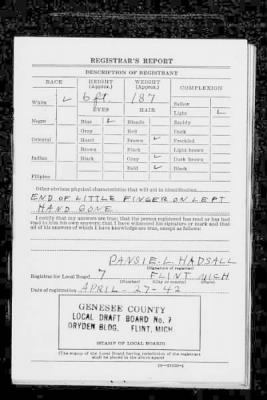 REGISTRAR'S REPORT
DESCRIPTION OF REGISTRANT
RACE HEIGHT (Approx.) WEIGHT (Approx.) COMPLEXION
White ✓ 6 ft. 187 Sallow
EYES HAIR Light ✓
Negro Blue ✓ Blonde Ruddy
Gray Red Dark
Oriental Hazel Brown ✓ Freckled
Brown Black Light brown
Indian Black Gray ✓ Dark brown
Bald ✓ Black
Filipino
Other obvious physical characteristics that will aid in identification
END OF LITTLE FINGER ON LEFT
HAND GONE
I certify that my answers are true; that the person registered has read or has had
read to him his own answers; that I have witnessed his signature or mark and that
all of his answers of which I have knowledge are true, except as follows:
PANSIE. L. HADSALL
(Signature of registrar)
Registrar for Local Board 7 FLINT MICH
(Number) (City or county) (State)
Date of registration APRIL-27-42
GENESEE COUNTY
LOCAL DRAFT BOARD No. 7
DRYDEN BLDG. FLINT, MICH
(STAMP OF LOCAL BOARD)
(The stamp of the Local Board having jurisdiction of the registrant
shall be placed in the above space)